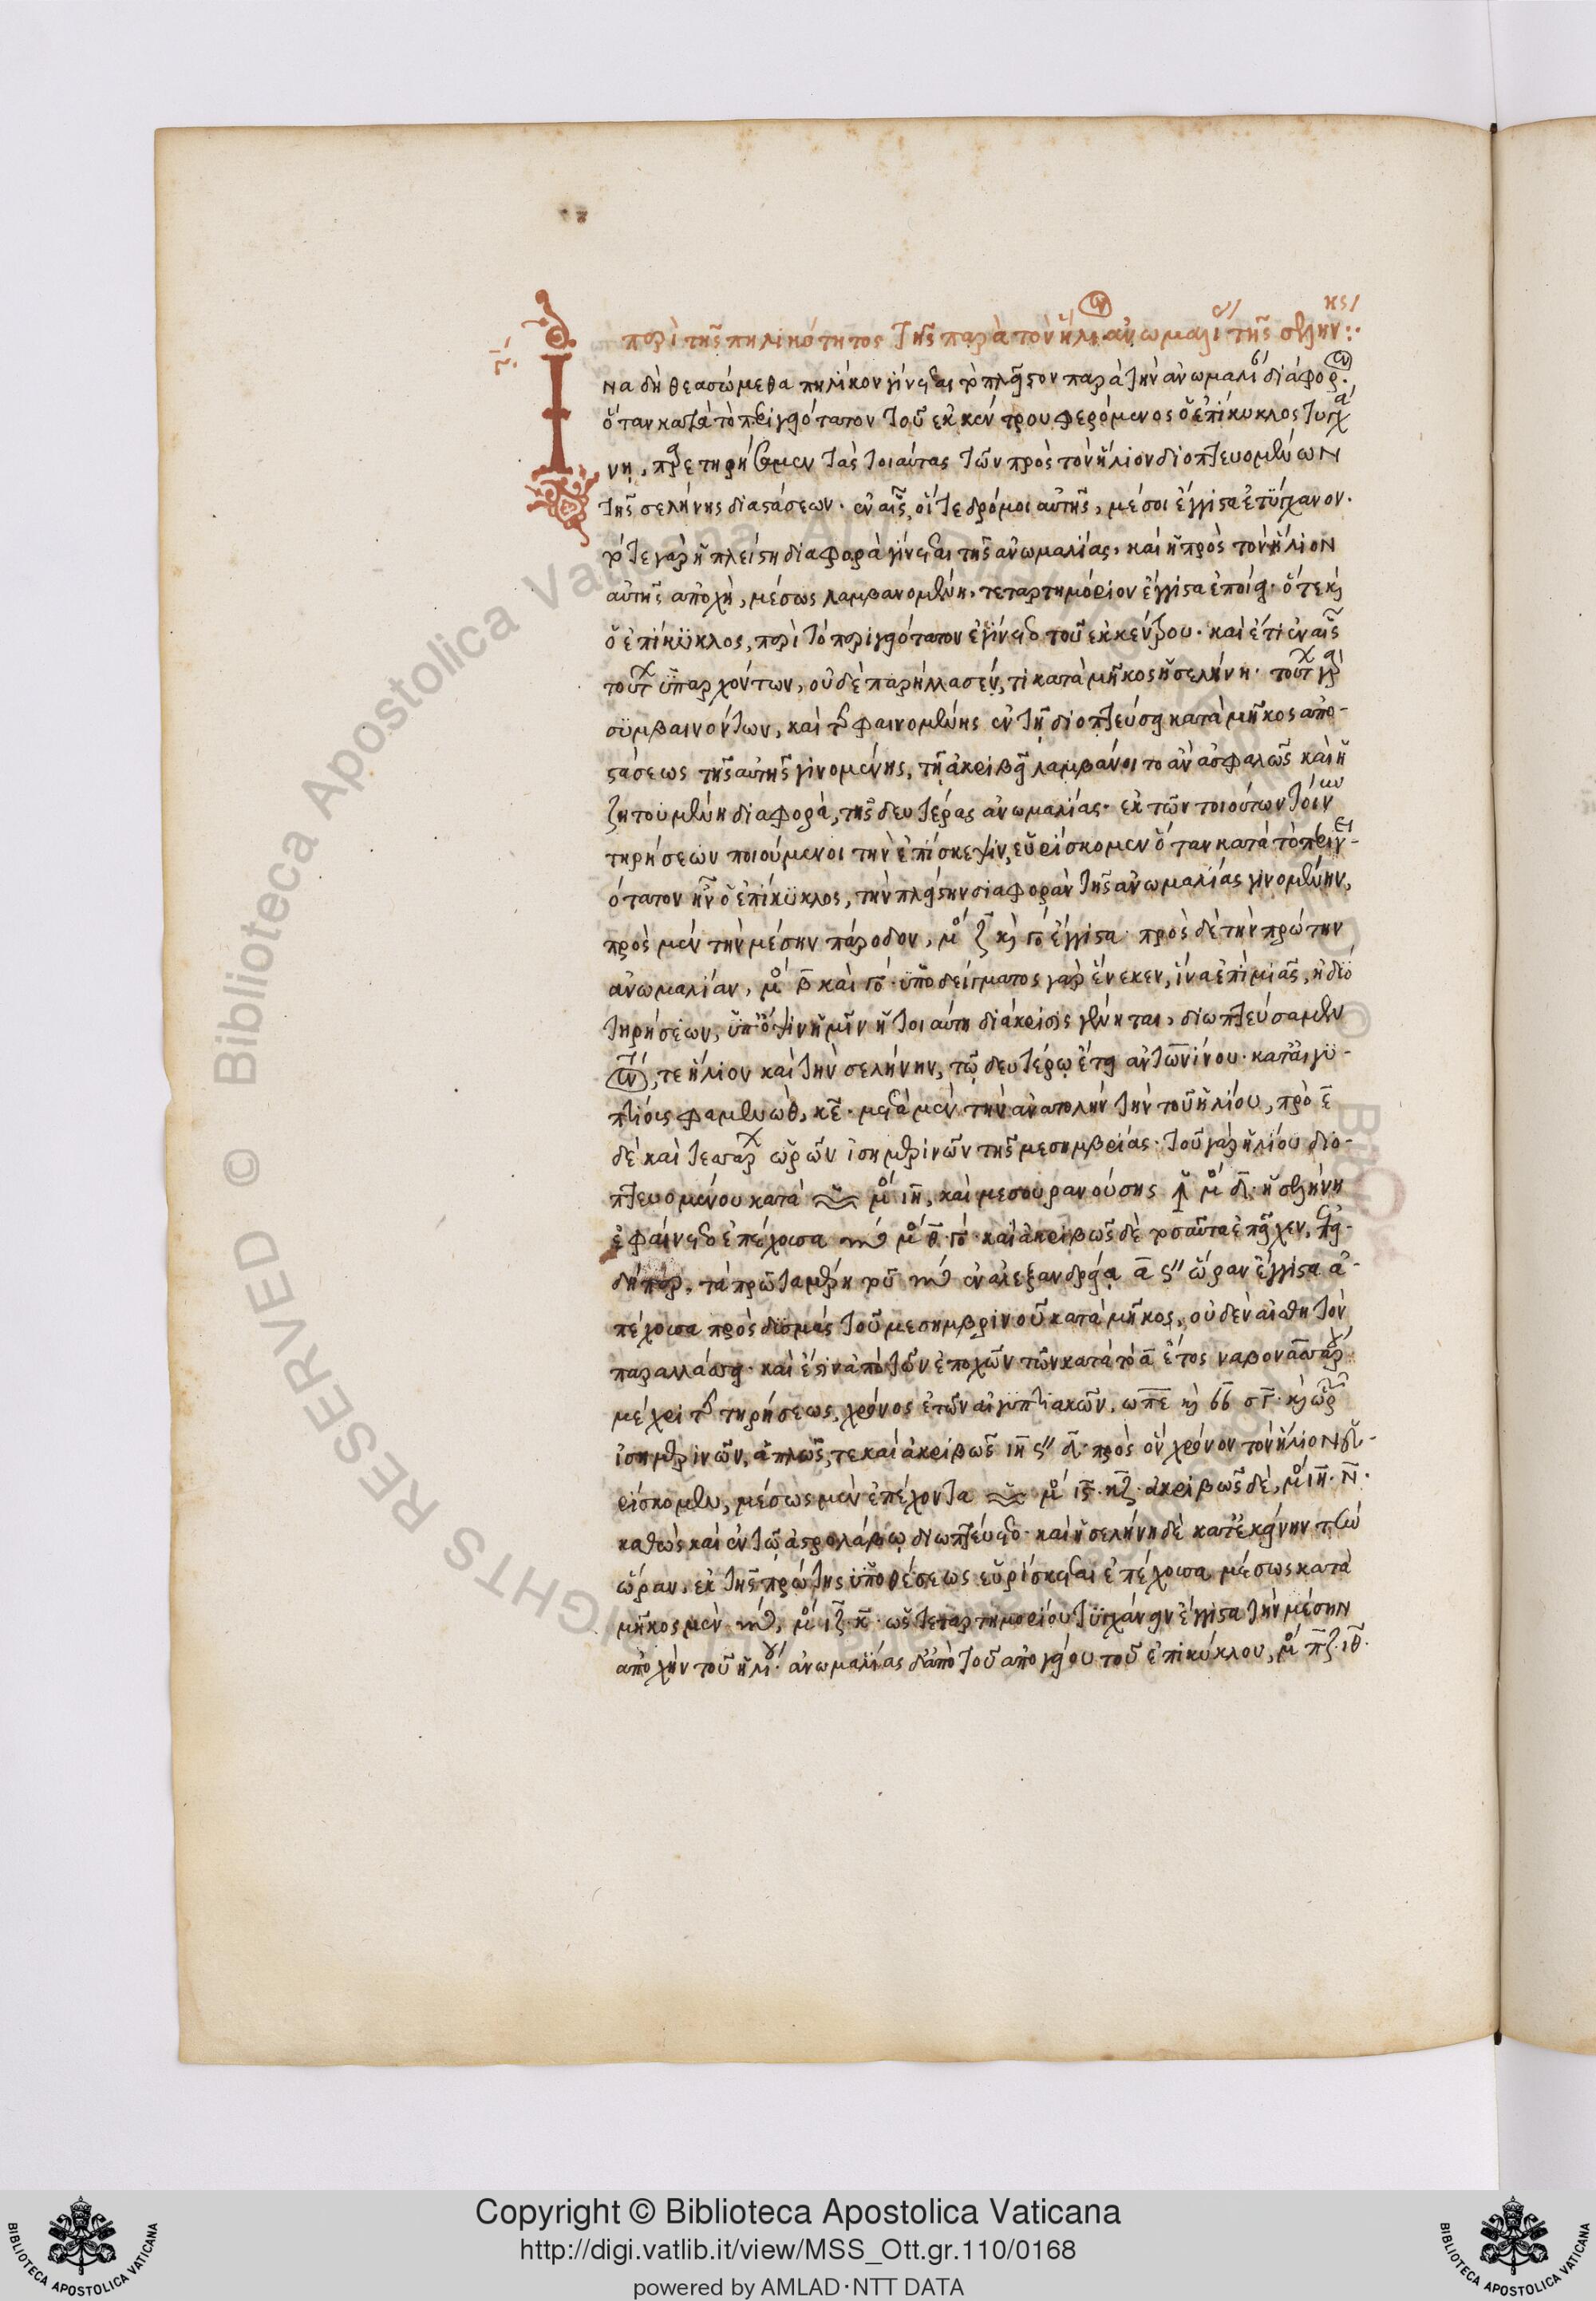 περὶ τῆς πηλικότητος τῆς παρὰ τὸν ἥλιον ἀνωμαλί τῆς σελην:·
να δὴ θεασώμεθα πηλίκον γίνεται τὸ πλεῖστον παρὰ τὴν ἀνωμαλί διάφορ.
ὅταν κατὰ τὸ περιγειότατον τοῦ ἐκκέντρου φερόμενος ὁ ἐπίκυκλος τυγχά
νῃ, παρετηρήσαμεν τὰς τοιαύτας τῶν πρὸς τὸν ἥλιον διοπτευομένων
τῆς σελήνης διαστάσεων. ἐν αἷς, οἵ τε δρόμοι αὐτῆς, μέσοι ἔγγιστα ἐτύγχανον.
τότε γὰρ ἡ πλείστη διαφορὰ γίνεται τῆς ἀνωμαλίας, καὶ ἡ πρὸς τὸν ἥλιον
αὐτῆς ἀποχὴ, μέσως λαμβανομένη, τεταρτημόριον ἔγγιστα ἐποίει. ὅτε καὶ
ὁ ἐπίκυκλος, περὶ τὸ περιγειότατον ἐγίνετο τοῦ ἐκκέντρου. καὶ ἔτι ἐν αἷς
τούτ ὑπαρχόντων, οὐδὲ παρήλλασέν, τι κατὰ μῆκος ἡ σελήνη. τούτ γὰρ
συμβαινόντων, καὶ τῆς φαινομένης ἐν τῇ διοπτεύσει κατὰ μῆκος ἀπο-
στάσεως τῆς αὐτῆς γινομένης, τῇ ἀκριβεῖ λαμβάνοιτο ἂν ἀσφαλῶς καὶ ἡ
ζητουμένη διαφορὰ, τῆς δευτέρας ἀνωμαλίας. ἐκ τῶν τοιούτων τοίνυν
τηρήσεων ποιούμενοι τὴν ἐπίσκεψιν, εὑρίσκομεν ὅταν κατὰ τὸ περιγει-
ότατον ἦν ὁ ἐπίκυκλος, τὴν πλείστην διαφορὰν τῆς ἀνωμαλίας γινομένην,
πρὸς μὲν τὴν μέσην πάροδον, μο ζ καὶ γο ἔγγιστα. πρὸς δὲ τὴν πρώτην
ἀνωμαλίαν, μο β καὶ γο. ὑποδείγματος γὰρ ἕνεκεν, ἵνα ἐπὶ μιᾶς, ἢ δύο
τηρήσεων, ὑπόψιν ἡμῖν ἡ τοιαύτη διάκρισις γένηται, διωπτεύσαμεν
τόν, τε ἥλιον καὶ τὴν σελήνην, τῷ δευτέρῳ ἔτει ἀντωνίνου. κατ' αἰγυ-
πτίοις φαμενὼθ, κε. μετὰ μὲν τὴν ἀνατολὴν τὴν τοῦ ἡλίου, πρὸ ε
δὲ καὶ τεταρ ὡρῶν ἰσημερινῶν τῆς μεσημβρίας. τοῦ γὰρ ἡλίου διο-
πτευομένου κατὰ ♒ μο ιη, καὶ μεσουρανούσης ♐ μο δ. ἡ σελήνη
ἐφαίνετο ἐπέχουσα ♏ μο θ. γο. καὶ ἀκριβῶς δὲ τοσαῦτα ἐπεῖχεν, ἐπει-
δήπερ, τὰ πρῶτα μέρη τοῦ ♏ ἐν ἀλεξανδρείᾳ α ϛ'' ὥραν ἔγγιστα ἀ-
πέχουσα πρὸς δυσμὰς τοῦ μεσημβρινοῦ κατὰ μῆκος, οὐδὲν αἰσθητὸν
παραλλάσσει. καὶ ἔστιν ἀπὸ τῶν ἐποχῶν τῶν κατὰ τὸ α ἔτος ναβονασσάρ
μέχρι τῆς τηρήσεως, χρόνος ἐτῶν αἰγυπτιακῶν, ωπε καὶ ϛϛ σγ. καὶ ὡρ
ἰσημερινῶν, ἁπλῶς, τε καὶ ἀκριβῶς ιη ϛ'' δ. πρὸς ὃν χρόνον τὸν ἥλιον εὑ-
ρίσκομεν, μέσως μὲν ἐπέχοντα ♒ μο ιϛ. κζ. ἀκριβῶς δὲ, μο ιη. ν.
καθὼς καὶ ἐν τῷ ἀστρολάβῳ διωπτεύετο. καὶ ἡ σελήνη δὲ κατ' ἐκείνην τὴν
ὥραν, ἐκ τῆς πρώτης ὑποθέσεως εὑρίσκεται ἐπέχουσα μέσως κατὰ
μῆκος μὲν ♏, μο ιζ. κ. ὡς τεταρτημορίου τυγχάνειν ἔγγιστα τὴν μέσην
ἀποχὴν τοῦ ἡλίου. ἀνωμαλίας δ' ἀπὸ τοῦ ἀπογείου τοῦ ἐπικύκλου, μο πζ. ιθ.
© Biblioteca Apostolica Vaticana
ALL RIGHTS RESERVED
Copyright © Biblioteca Apostolica Vaticana
http://digi.vatlib.it/view/MSS_Ott.gr.110/0168
powered by AMLAD·NTT DATA
BIBLIOTECA APOSTOLICA VATICANA
BIBLIOTECA APOSTOLICA VATICANA